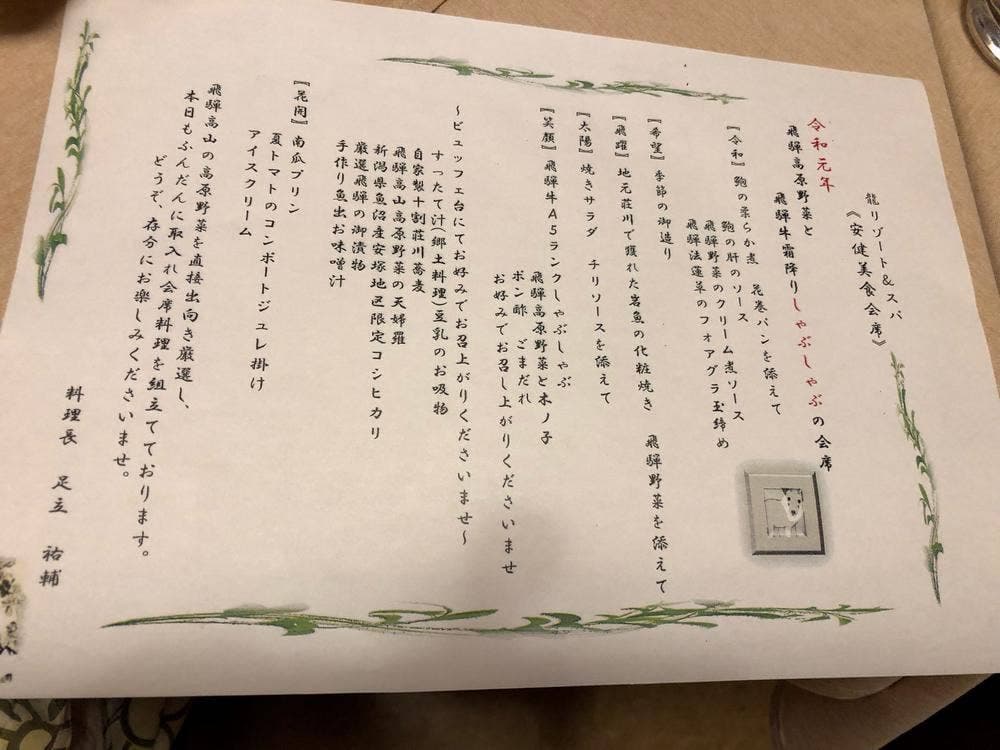 龍リゾート&スパ
《安健美食会席》
令和元年
飛騨高原野菜と
飛騨牛霜降りしゃぶしゃぶの会席
【令和】鮑の柔らか煮 花巻パンを添えて
鮑の肝のソース
飛騨野菜のクリーム煮ソース
飛騨法蓮草のフォアグラ玉締め
【希望】季節の御造り 飛騨野菜を添えて
【飛躍】地元荘川で獲れた岩魚の化粧焼き
【太陽】焼きサラダ チリソースを添えて
【笑顔】飛騨牛A5ランクしゃぶしゃぶ
飛騨高原野菜と木ノ子
ポン酢 ごまだれ
お好みでお召し上がりくださいませ
～ビュッフェ台にてお好みでお召上がりくださいませ～
すったて汁(郷土料理)豆乳のお吸物
自家製十割荘川蕎麦
飛騨高山高原野菜の天婦羅
新潟県魚沼産安塚地区限定コシヒカリ
厳選飛騨の御漬物
手作り魚出お味噌汁
【花開】南瓜プリン
夏トマトのコンポートジュレ掛け
アイスクリーム
飛騨高山の高原野菜を直接出向き厳選し、
本日もふんだんに取入れ会席料理を組立てております。
どうぞ、存分にお楽しみくださいませ。
料理長 足立 祐輔